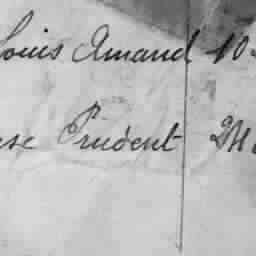 Louis Amand 10
Prudent